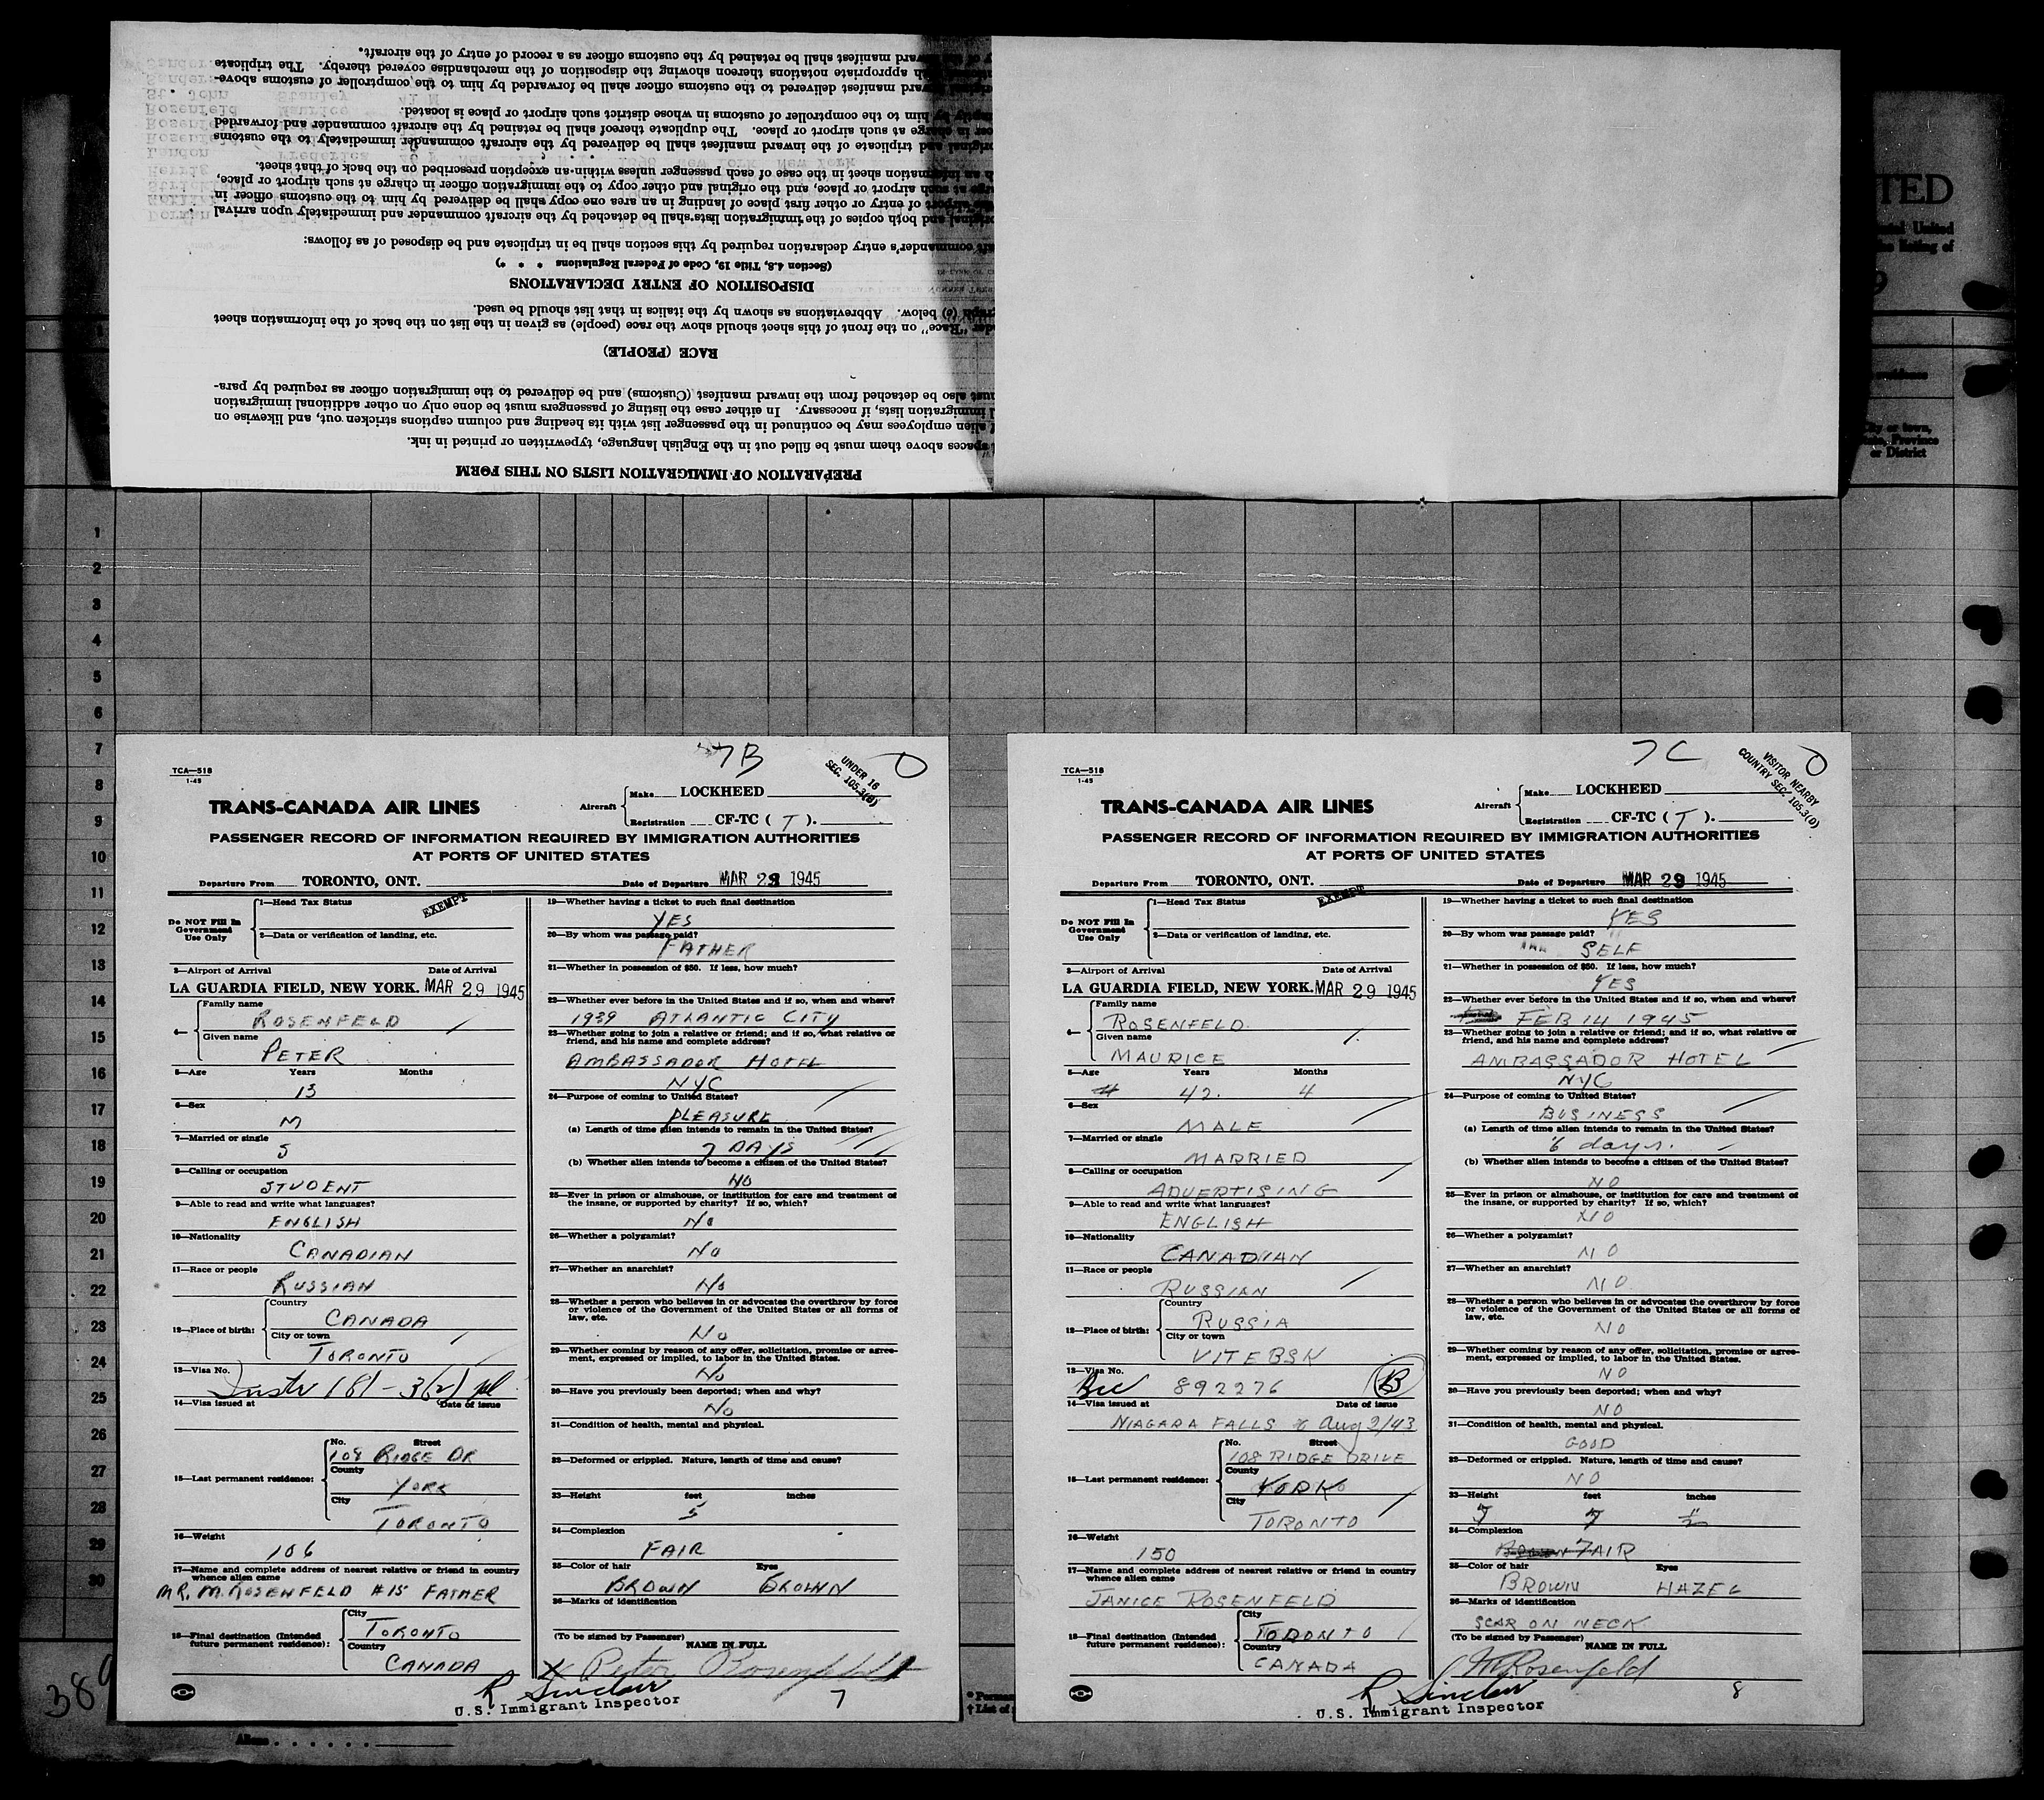 PREPARATION OF IMMIGRATION LISTS ON THIS FORM
spaces above them must be filled out in the English language, typewritten or printed in ink.
alien employees may be continued in the passenger list with its heading and column captions stricken out, and likewise on
immigration lists, if necessary. In either case the listing of passengers must be done only on other additional immigration
must also be detached from the inward manifest (Customs) and be delivered to the immigration officer as required by para-
RACE (PEOPLE)
"Race" on the front of this sheet should show the race (people) as given in the list on the back of the information sheet
(e) below. Abbreviations as shown by the italics in that list should be used.
DISPOSITION OF ENTRY DECLARATIONS
(Section 4.8, Title 19, Code of Federal Regulations * * *)
commander's entry declaration required by this section shall be in triplicate and be disposed of as follows:
and both copies of the immigration lists shall be detached by the aircraft commander and immediately upon arrival
airport of entry or other first place of landing in an area one copy shall be delivered by him to the customs officer in
at such airport or place, and the original and other copy to the immigration officer in charge at such airport or place,
an information sheet in the case of each passenger unless within an exception prescribed on the back of that sheet.
and triplicate of the inward manifest shall be delivered by the aircraft commander immediately to the customs
in charge at such airport or place. The duplicate thereof shall be retained by the aircraft commander and forwarded
by him to the comptroller of customs in whose district such airport or place is located.
inward manifest delivered to the customs officer shall be forwarded by him to the comptroller of customs above-
appropriate notations thereon showing the disposition of the merchandise covered thereby. The triplicate
of the inward manifest shall be retained by the customs officer as a record of entry of the aircraft.
TED
United
listing of
City or town,
State, Province
or District
1
2
3
4
5
6
7
8
9
10
11
12
13
14
15
16
17
18
19
20
21
22
23
24
25
26
27
28
29
30
7B
UNDER 16
SEC. 105.3(B)
TCA—518
1-45
TRANS-CANADA AIR LINES
Aircraft
Make LOCKHEED
Registration CF-TC ( T ).
PASSENGER RECORD OF INFORMATION REQUIRED BY IMMIGRATION AUTHORITIES
AT PORTS OF UNITED STATES
Departure From TORONTO, ONT. Date of Departure MAR 29 1945
Do NOT Fill In
Government
Use Only
1—Head Tax Status EXEMPT
2—Data or verification of landing, etc.
3—Airport of Arrival Date of Arrival
LA GUARDIA FIELD, NEW YORK. MAR 29 1945
4—
Family name
ROSENFELD
Given name
PETER
5—Age Years Months
13
6—Sex
M
7—Married or single
S
8—Calling or occupation
STUDENT
9—Able to read and write what languages?
ENGLISH
10—Nationality
CANADIAN
11—Race or people
RUSSIAN
12—Place of birth:
Country
CANADA
City or town
TORONTO
13—Visa No.
Instr 181-3(2)
14—Visa issued at Date of issue
15—Last permanent residence:
No. Street
108 RIDGE DR
County
YORK
City
TORONTO
16—Weight
106
17—Name and complete address of nearest relative or friend in country
whence alien came
MR. M. ROSENFELD #15 FATHER
18—Final destination (Intended
future permanent residence):
City
TORONTO
Country
CANADA
19—Whether having a ticket to such final destination
YES
20—By whom was passage paid?
FATHER
21—Whether in possession of $50. If less, how much?
22—Whether ever before in the United States and if so, when and where?
1939 ATLANTIC CITY
23—Whether going to join a relative or friend; and if so, what relative or
friend, and his name and complete address?
AMBASSADOR HOTEL
NYC
24—Purpose of coming to United States?
PLEASURE
(a) Length of time alien intends to remain in the United States?
7 DAYS
(b) Whether alien intends to become a citizen of the United States?
NO
25—Ever in prison or almshouse, or institution for care and treatment of
the insane, or supported by charity? If so, which?
No
26—Whether a polygamist?
No
27—Whether an anarchist?
No
28—Whether a person who believes in or advocates the overthrow by force
or violence of the Government of the United States or all forms of
law, etc.
No
29—Whether coming by reason of any offer, solicitation, promise or agree-
ment, expressed or implied, to labor in the United States.
No
30—Have you previously been deported; when and why?
No
31—Condition of health, mental and physical.
32—Deformed or crippled. Nature, length of time and cause?
33—Height feet inches
5
34—Complexion
FAIR
35—Color of hair Eyes
BROWN BROWN
36—Marks of identification
(To be signed by Passenger)
NAME IN FULL
X Peter Rosenfeld
R Sinclair
U.S. Immigrant Inspector
7
7C
VISITOR NEARBY
COUNTRY SEC. 105.3(D)
TCA—518
1-45
TRANS-CANADA AIR LINES
Aircraft
Make LOCKHEED
Registration CF-TC ( T ).
PASSENGER RECORD OF INFORMATION REQUIRED BY IMMIGRATION AUTHORITIES
AT PORTS OF UNITED STATES
Departure From TORONTO, ONT. Date of Departure MAR 29 1945
Do NOT Fill In
Government
Use Only
1—Head Tax Status EXEMPT
2—Data or verification of landing, etc.
3—Airport of Arrival Date of Arrival
LA GUARDIA FIELD, NEW YORK. MAR 29 1945
4—
Family name
ROSENFELD
Given name
MAURICE
5—Age Years Months
42 4
6—Sex
MALE
7—Married or single
MARRIED
8—Calling or occupation
ADVERTISING
9—Able to read and write what languages?
ENGLISH
10—Nationality
CANADIAN
11—Race or people
RUSSIAN
12—Place of birth:
Country
RUSSIA
City or town
VITEBSK
13—Visa No.
BCC 892276 B
14—Visa issued at Date of issue
NIAGARA FALLS Aug 2/43
15—Last permanent residence:
No. Street
108 RIDGE DRIVE
County
YORK
City
TORONTO
16—Weight
150
17—Name and complete address of nearest relative or friend in country
whence alien came
JANICE ROSENFELD
18—Final destination (Intended
future permanent residence):
City
TORONTO
Country
CANADA
19—Whether having a ticket to such final destination
YES
20—By whom was passage paid?
SELF
21—Whether in possession of $50. If less, how much?
YES
22—Whether ever before in the United States and if so, when and where?
FEB 14 1945
23—Whether going to join a relative or friend; and if so, what relative or
friend, and his name and complete address?
AMBASSADOR HOTEL
NYC
24—Purpose of coming to United States?
BUSINESS
(a) Length of time alien intends to remain in the United States?
6 days.
(b) Whether alien intends to become a citizen of the United States?
NO
25—Ever in prison or almshouse, or institution for care and treatment of
the insane, or supported by charity? If so, which?
NO
26—Whether a polygamist?
NO
27—Whether an anarchist?
NO
28—Whether a person who believes in or advocates the overthrow by force
or violence of the Government of the United States or all forms of
law, etc.
NO
29—Whether coming by reason of any offer, solicitation, promise or agree-
ment, expressed or implied, to labor in the United States.
NO
30—Have you previously been deported; when and why?
NO
31—Condition of health, mental and physical.
GOOD
32—Deformed or crippled. Nature, length of time and cause?
NO
33—Height feet inches
5 7 1/2
34—Complexion
FAIR
35—Color of hair Eyes
BROWN HAZEL
36—Marks of identification
SCAR ON NECK
(To be signed by Passenger)
NAME IN FULL
M Rosenfeld
R Sinclair
U.S. Immigrant Inspector
8
389
Aliens
† List of